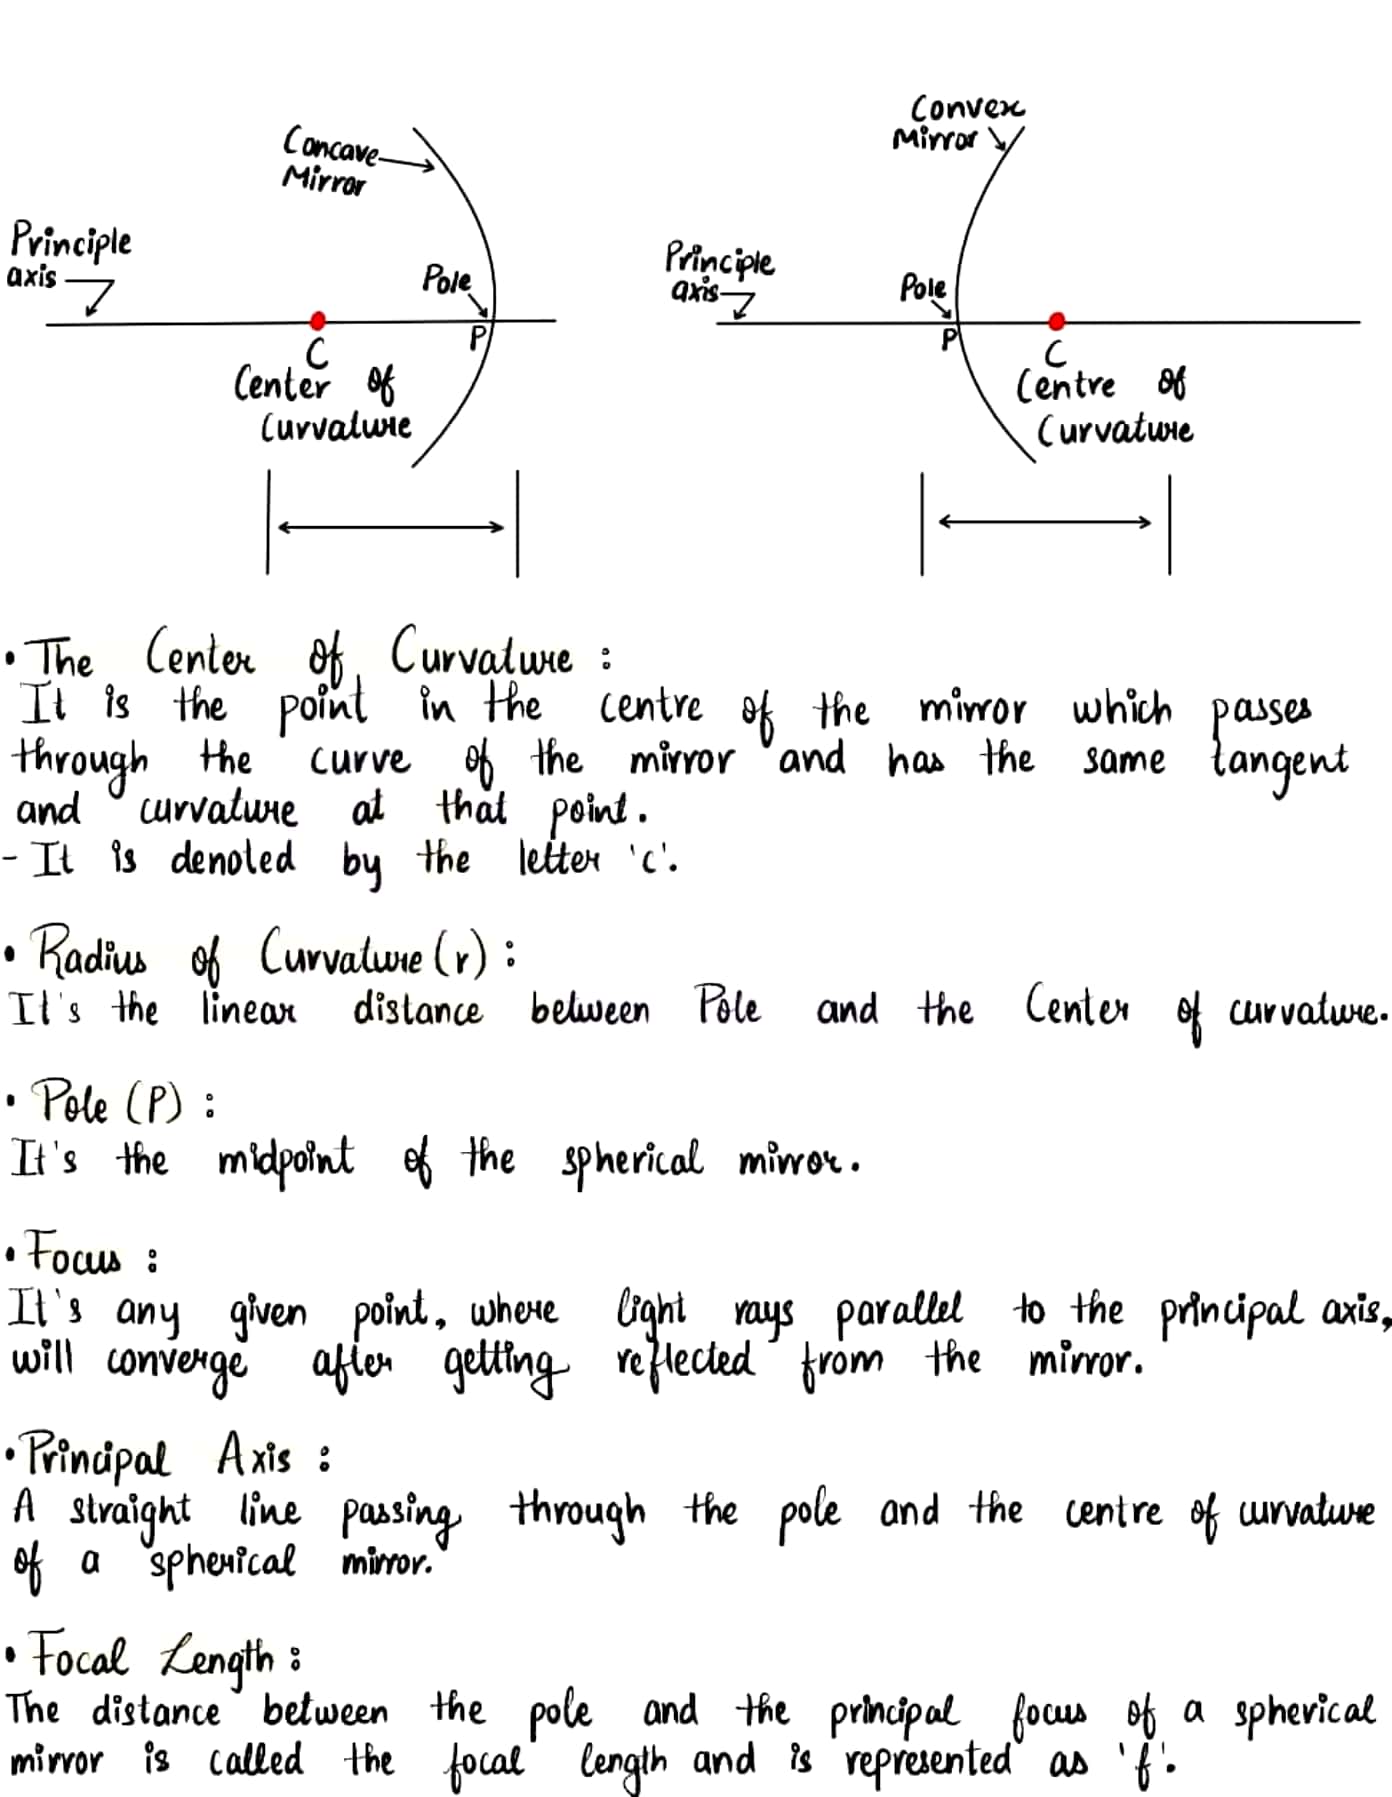 Concave
Mirror
Principle
axis
Pole
P
C
Center of
Curvature
Convex
Mirror
Principle
axis
Pole
P
C
Centre of
Curvature
• The Center of Curvature :
It is the point in the centre of the mirror which passes
through the curve of the mirror and has the same tangent
and curvature at that point.
- It is denoted by the letter 'c'.
• Radius of Curvature (r) :
It's the linear distance between Pole and the Center of curvature.
• Pole (P) :
It's the midpoint of the spherical mirror.
• Focus :
It's any given point, where light rays parallel to the principal axis,
will converge after getting reflected from the mirror.
• Principal Axis :
A straight line passing through the pole and the centre of curvature
of a spherical mirror.
• Focal Length :
The distance between the pole and the principal focus of a spherical
mirror is called the focal length and is represented as 'f'.